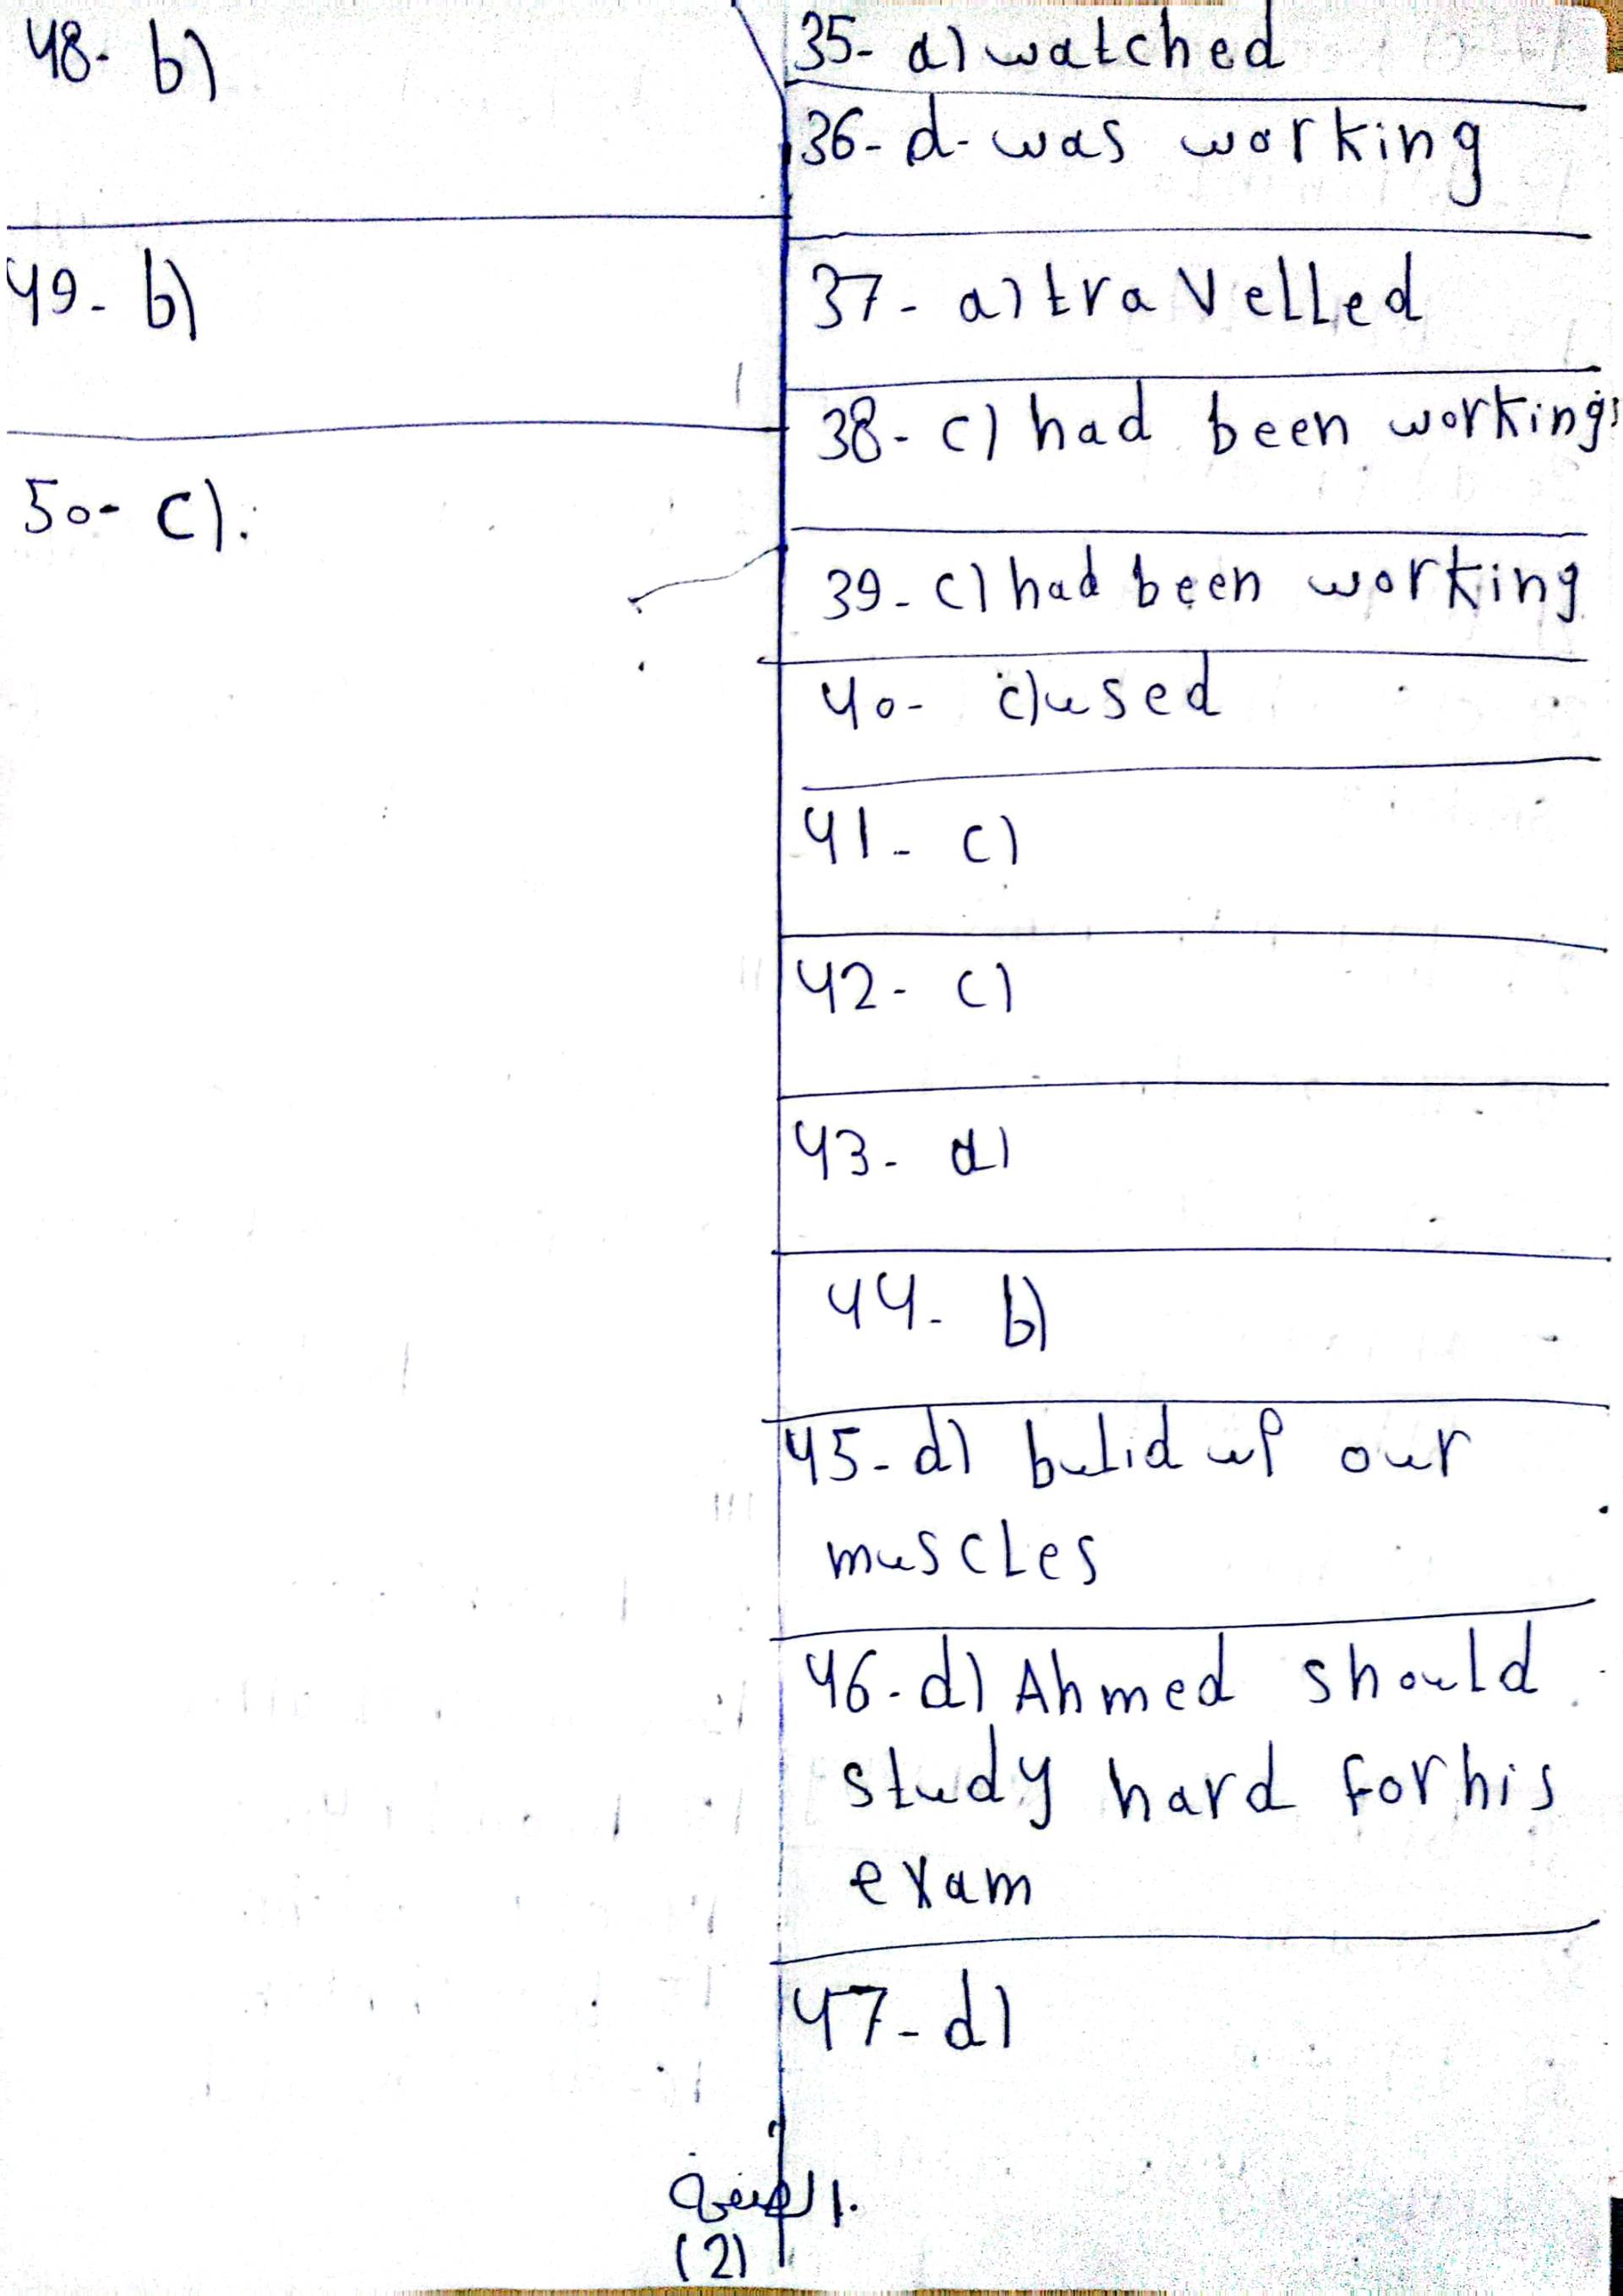 35- a) watched
36- d- was working
37- a) travelled
38- c) had been working
39- c) had been working
40- c) used
41- c)
42- c)
43- a)
44- b)
45- d) bulid up our
muscles
46- d) Ahmed should
study hard for his
exam
47- d)
48- b)
49- b)
50- c).
الصفحة
(2)